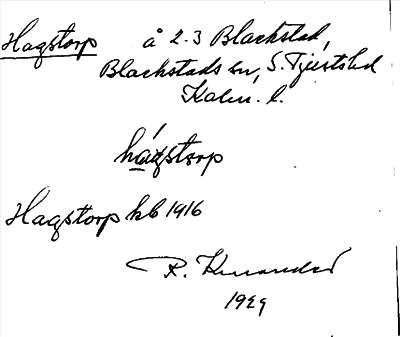 Hagstorp å 2.3 Blackstad,
Blackstads sn, S. Tjusts hd
Kalm. l.
hágstorp
Hagstorp kb 1916
R.
1929